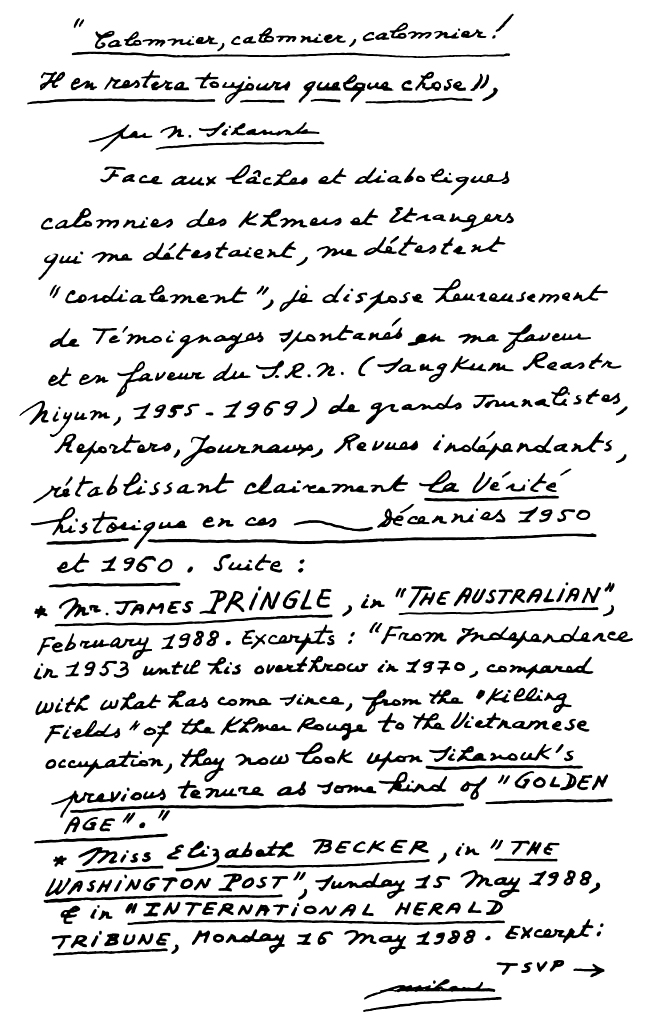 "Calomnier, calomnier, calomnier!
Il en restera toujours quelque chose",
par N. Sihanouk
Face aux lâches et diaboliques
calomnies des Khmers et Etrangers
qui me détestaient, me détestent
"cordialement", je dispose heureusement
de Témoignages spontanés en ma faveur
et en faveur du S.R.N. (Sangkum Reastr
Niyum, 1955-1969) de grands Journalistes,
Reporters, Journaux, Revues indépendants,
rétablissant clairement la Vérité
historique en ces Décennies 1950
et 1960. Suite :
* Mr. JAMES PRINGLE, in "THE AUSTRALIAN",
February 1988. Excerpts : "From Independence
in 1953 until his overthrow in 1970, compared
with what has come since, from the "Killing
Fields" of the Khmer Rouge to the Vietnamese
occupation, they now look upon Sihanouk's
previous tenure as some kind of "GOLDEN
AGE"."
* Miss Elizabeth BECKER, in "THE
WASHINGTON POST", Sunday 15 May 1988,
& in "INTERNATIONAL HERALD
TRIBUNE, Monday 16 May 1988. Excerpt :
TSVP →